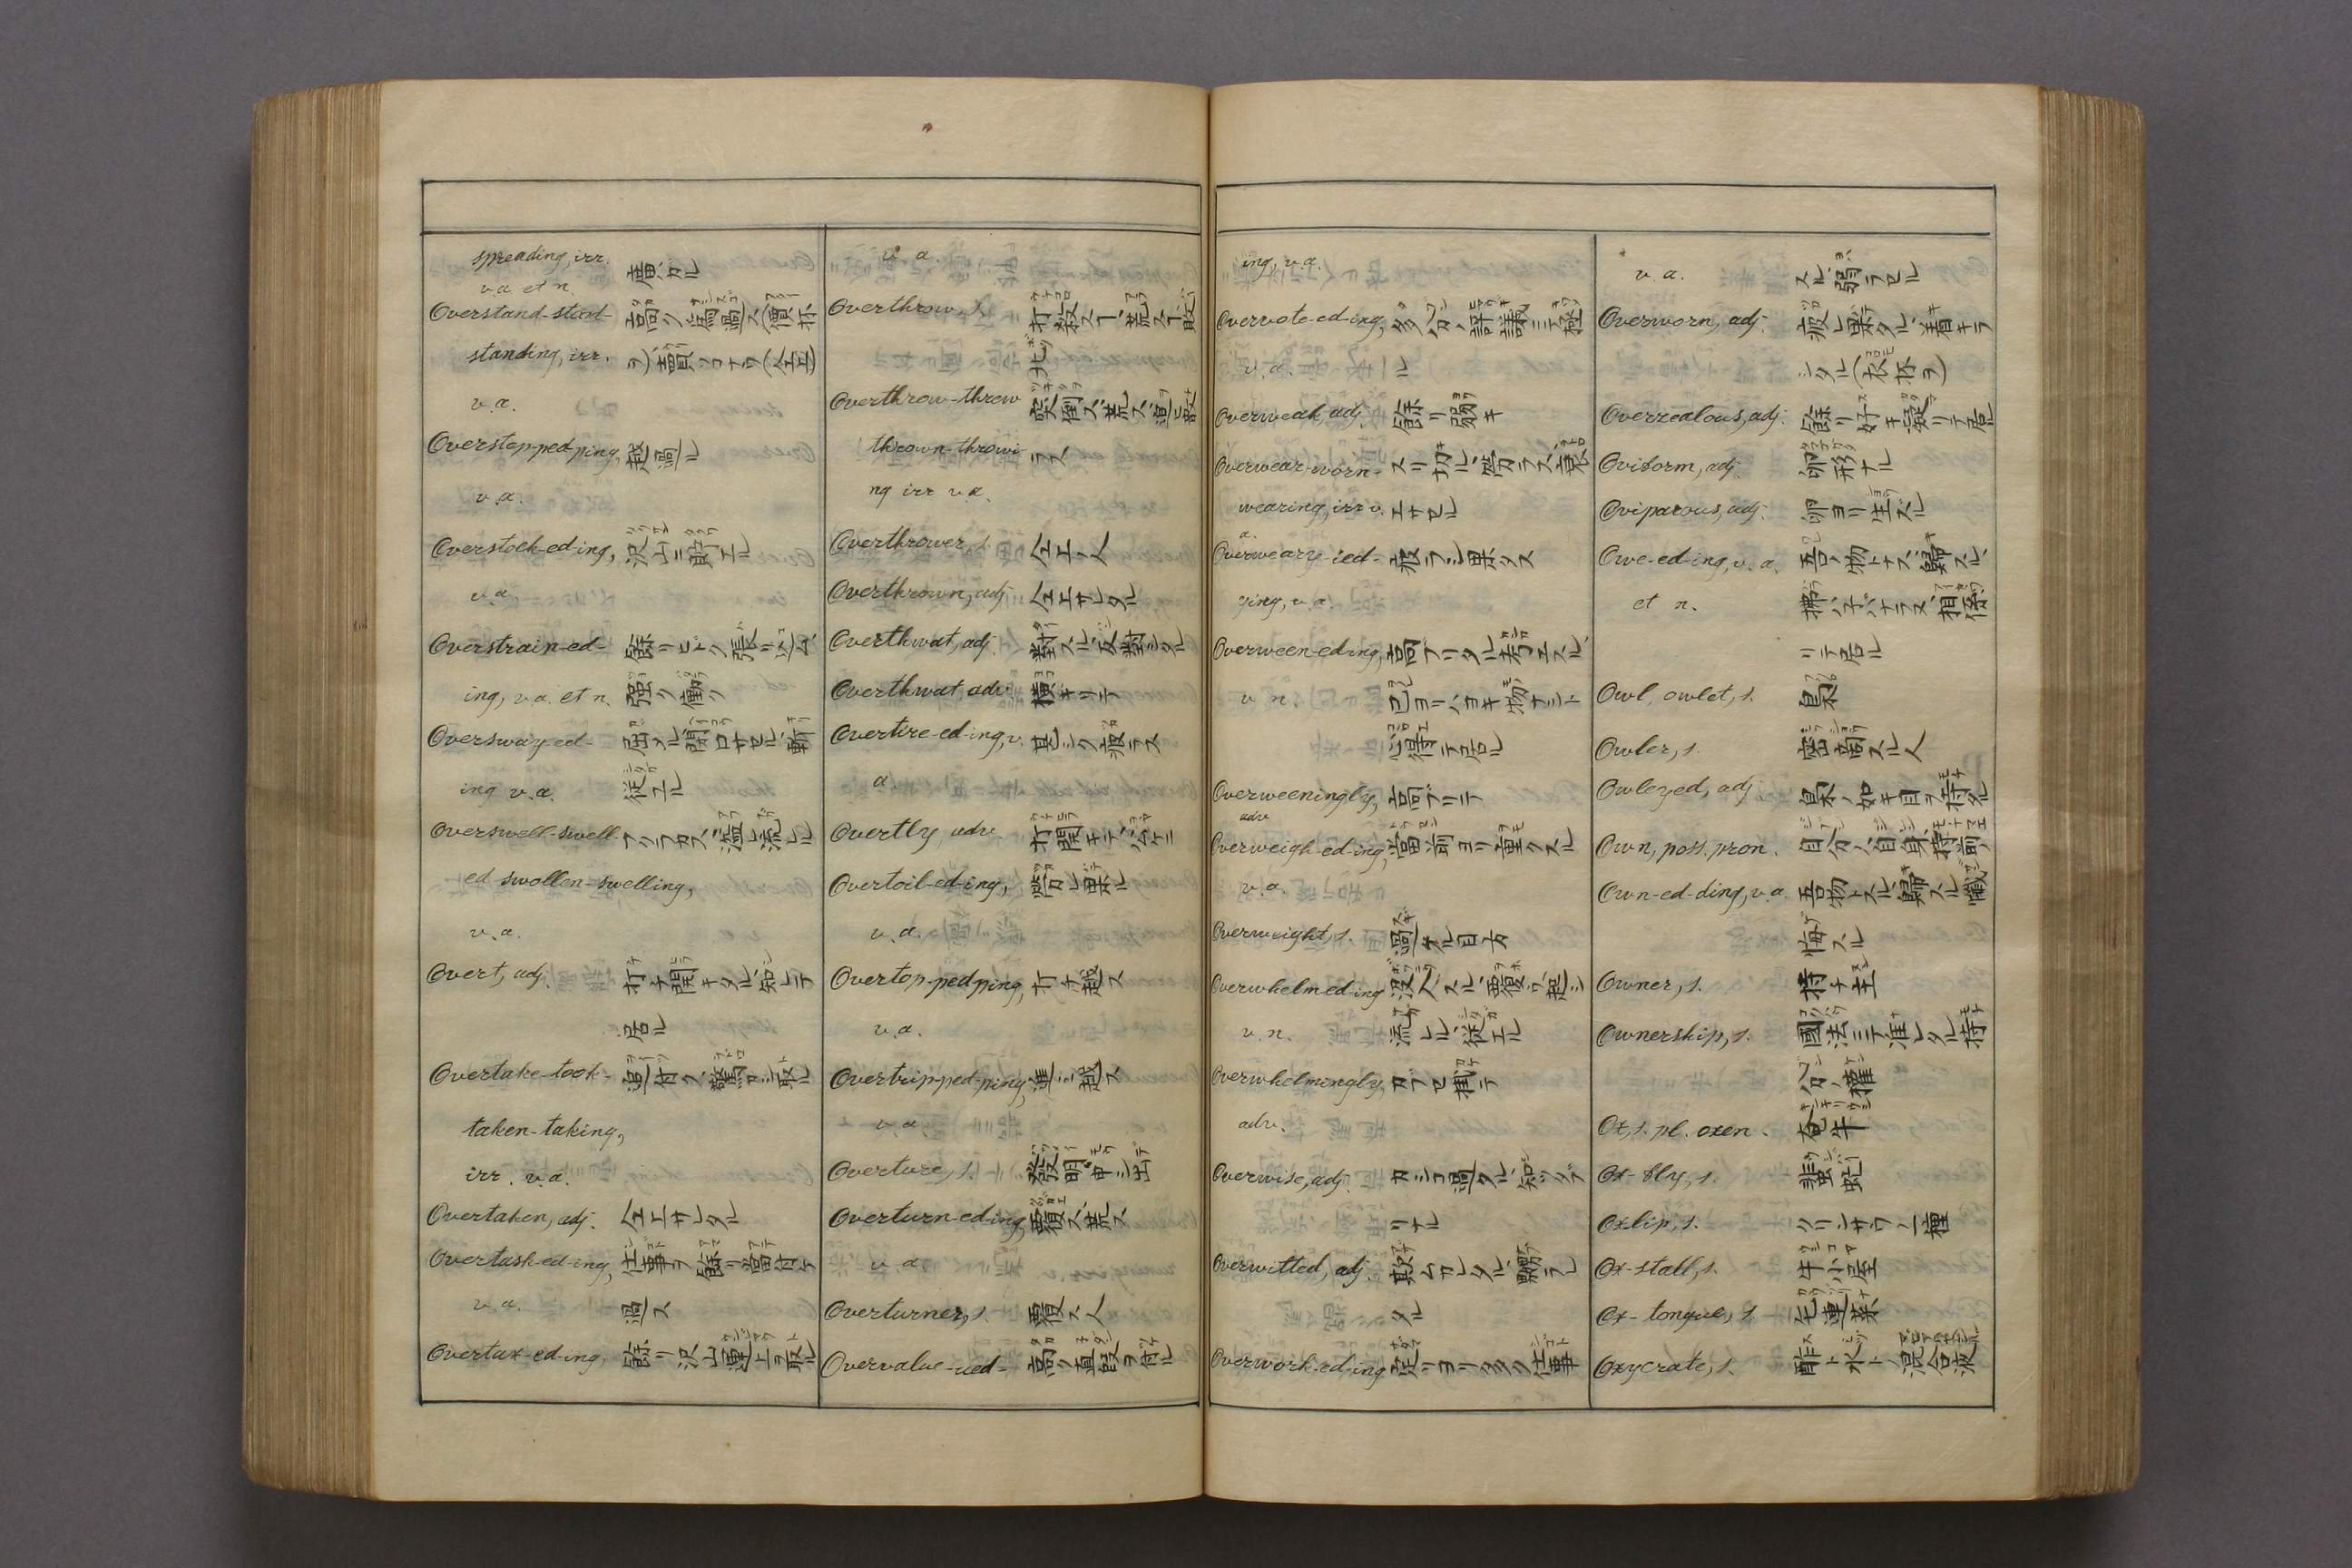 spreading, irr. 廣ガル
v.a. et n.
Overstand-stood- 高ク過ス(價抔
standing, irr. ヲ)賣リ(仝上)
v.a.
Overstep-ped-ping, 越過ル
v.a.
Overstock-ed-ing, 沢山ニ貯エル
v.a.
Overstrain-ed- 餘リヒドク張リ込ム、
ing, v.a. et n. 強ク働ク
Oversway-ed- 屈メル閉口サセル、
ing v.a. 従エル
Overswell-swell フクラカス、溢レ流レル
ed swollen-swelling,
v.a.
Overt, adj. 打チ開キタル、知レテ
居ル
Overtake-took- 追付ク、驚カシ取ル
taken-taking,
irr. v.a.
Overtaken, adj. 仝上サレタル
Overtask-ed-ing, 仕事ヲ餘リ當付ケ
v.a. 過ス
Overtax-ed-ing, 餘リ沢山運上ヲ取ル
v.a.
Overthrow, s. 打殺スヿ、荒スヿ敗
北
Overthrow-threw 突倒ス、荒ス、追散
thrown-throwi ラス
ng irr v.a.
Overthrower, s. 仝上ノ人
Overthrown, adj 仝上サレタル
Overthwat, adj. 對スル、反對シタル
Overthwat adv. 横ギリテ
Overtire-ed-ing, v. 甚シク疲ラス
a
Overtly, adv. 打開キテ、公ケニ
Overtoil-ed-ing, 労レ果ル
v.a.
Overtop-ped-ping, 打チ越ス
v.a.
Overtrip-ped-ping, 進ミ越ス
v.a.
Overture, s. 發明、申シ出
Overturn-ed-ing, 覆ス、荒ス
v.a.
Overturner, s. 覆ス人
Overvalue-ued- 高ク直段ヲ付ル
ing, v.a.
Overvote-ed-ing, 多分ノ評議ニテ極
v.a. ル
Overweak, adj. 餘リ弱キ
Overwear-worn- スリ切ル、労ラス、衰
wearing, irr v. エサセル
a.
Overweary-ied- 疲ラシ果タス
ying, v.a.
Overween-ed-ing, 高ブリタル考エスル、
v.n. 己ヨリハヨキ物ナシト
心得テ居ル
Overweeningly, 高ブリテ
adv
Overweigh-ed-ing, 當前ヨリ重クスル
v.a.
Overweight, s. 過タル目方
Overwhelm-ed-ing 没入スル、覆ウ、起シ
v.n. 流レル、従エル
Overwhelmingly, カブセ掛テ
adv.
Overwise, adj. カシコ過タル、知ッタブ
リナル
Overwitted, adj. 欺ムカレタル、
タル
Overwork-ed-ing 定リヨリ多ク仕事
v.a. スル、弱ラセル
Overworn, adj. 疲レ果タル、着キラ
シタル(衣抔ヲ)
Overzealous, adj. 餘リ好キ凝リテ居
Oviform, adj. 卵形ナル
Oviparous, adj. 卵ヨリ生ズル
Owe-ed-ing, v.a. 吾物トナス、歸スル、
et n. 拂ハ子バナラヌ、相係
リテ居ル
Owl, owlet, s. 梟
Owler, s. 密商スル人
Owleyed, adj 梟ノ如キ目ヲ持タル
Own, poss. pron. 自分ノ、自身、持前
Own-ed-ding, v.a. 吾物トスル、歸スル、懺
悔スル
Owner, s. 持チ主
Ownership, s. 國法ニテ准レタル持
分ノ權
Ox, s. pl. oxen. 牛
Ox-fly, s. 虻
Oxlip, s. クリンサウノ一種
Ox-stall, s. 牛小屋
Ox-tongue, s.
Oxycrate, s. 醋ト水トノ混合液